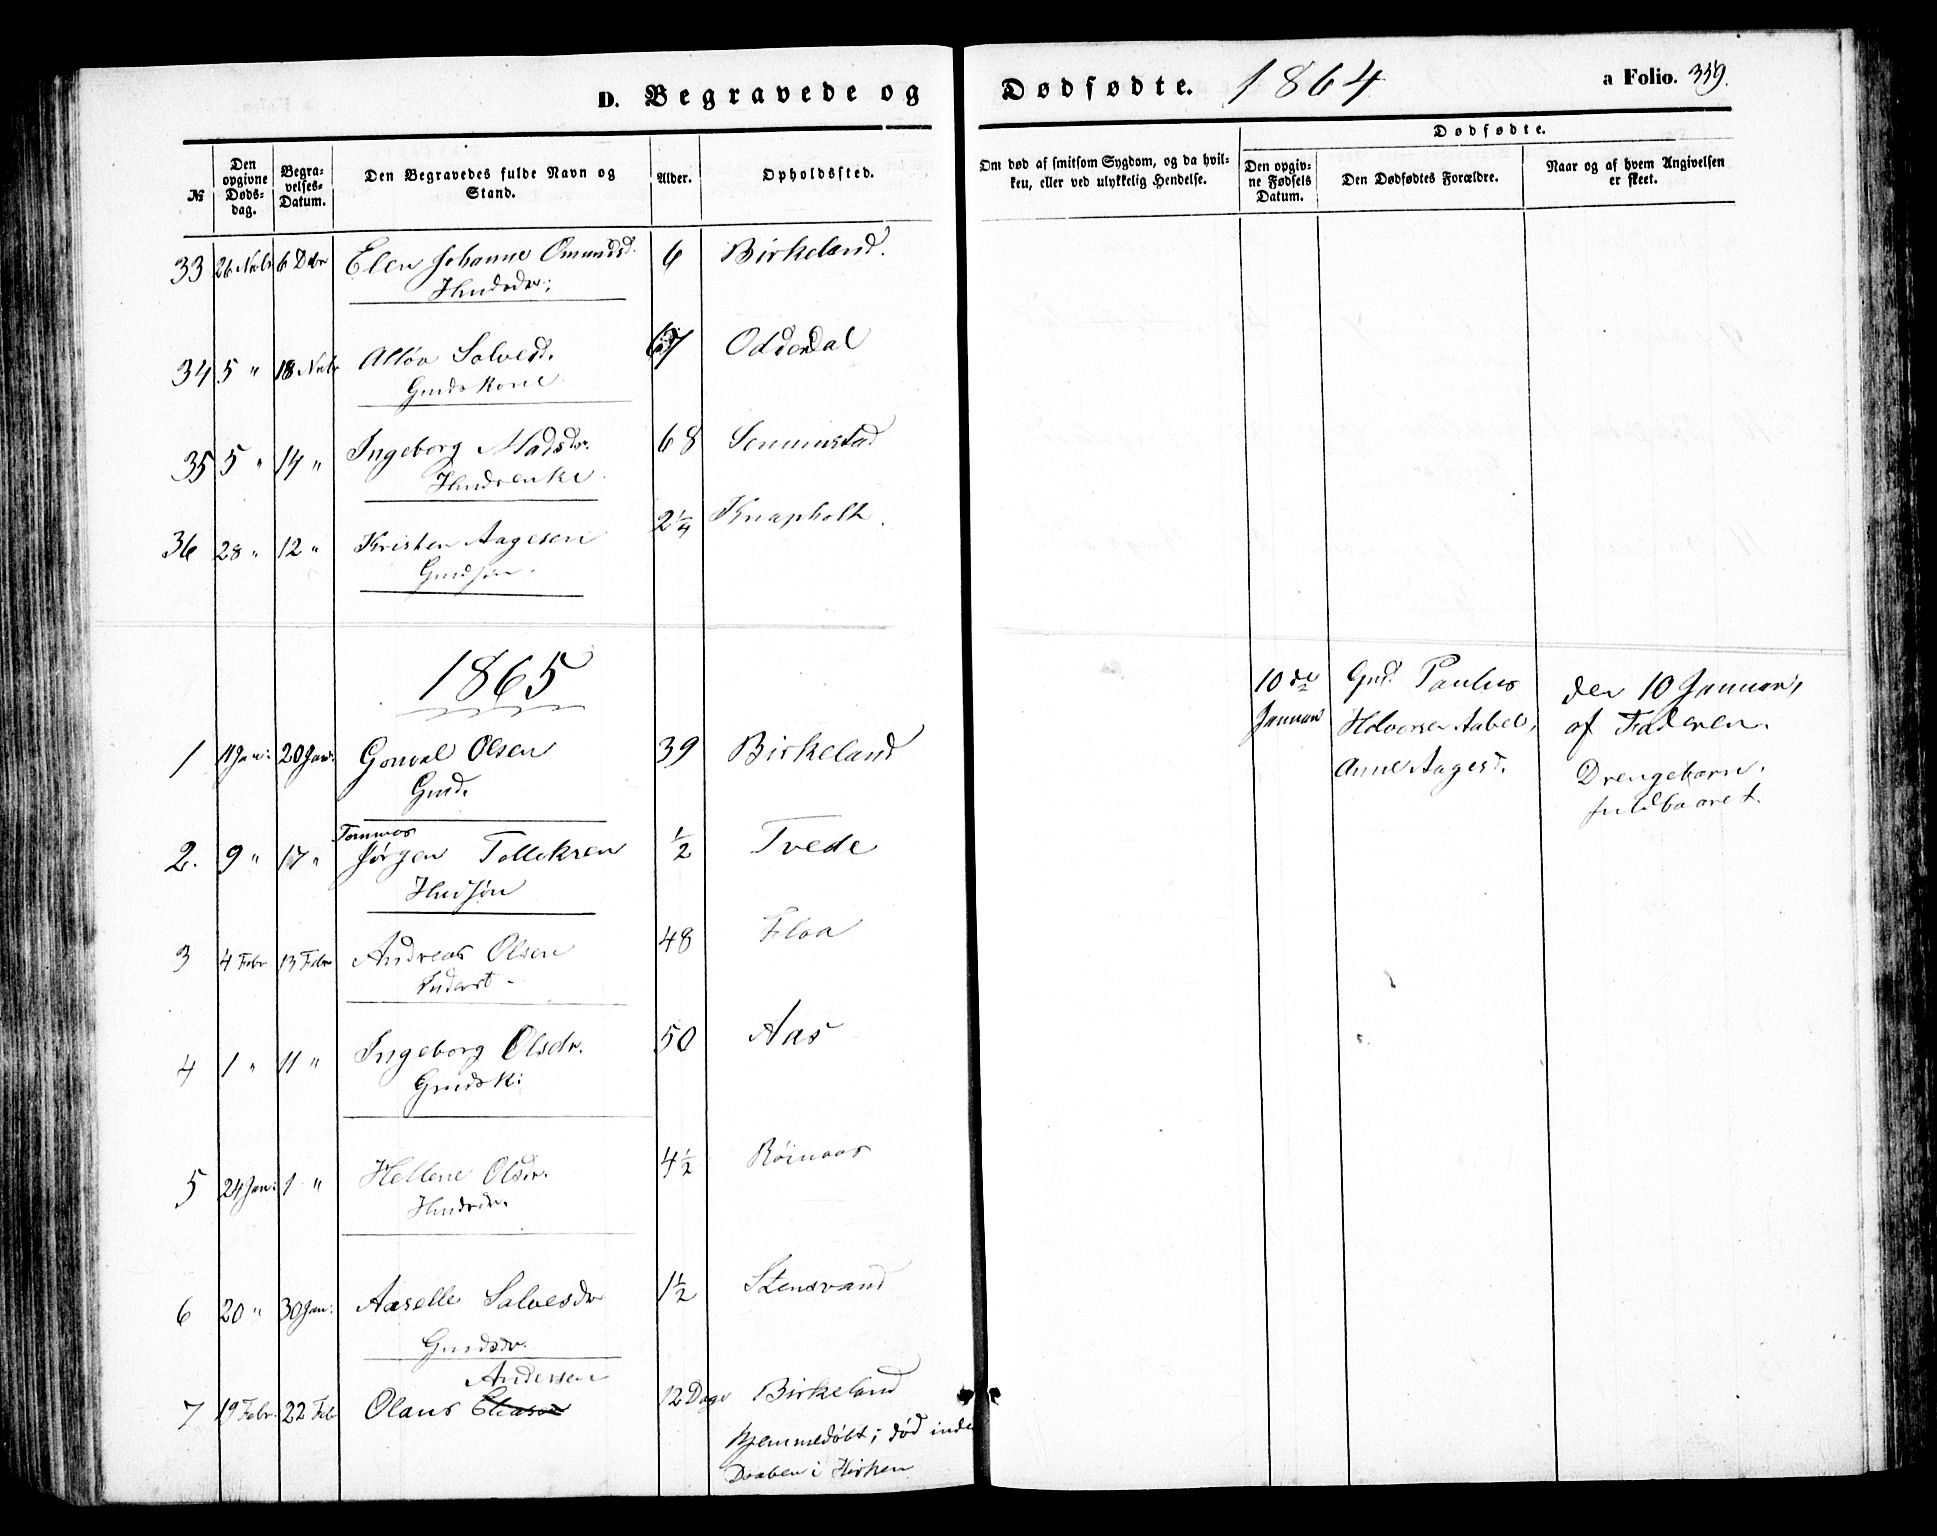 D. Begravede og Dødfødte. 1864 a Folio. 359.
№
Den opgivne Døds-dag.
Begra-velses-Datum.
Den Begravedes fulde Navn og Stand.
Alder.
Opholdssted.
Om død af smitsom Sygdom, og da hvil-
ken, eller ved ulykkelig Hendelse.
Dødfødte.
Den opgiv-ne Fødsels Datum.
Den Dødfødtes Forældre.
Naar og af hvem Angivelsen er skeet.
33 26 Nvbr 6 Dcbr Elen Johanne Omundsd. 6 Birkeland.
Husdr.
34 5 " 18 Nvbr Salvesd. 67 Oddendal
Gmdskone
35 5 " 14 " Ingeborg Madsdr. 68 Semmstad
Husenke
36 28 " 12 " Kristen Aagesen 2 1/4 Knapholt.
Gmdsøn.
1865
1 11 Jan: 20 Jan: Gonval Olsen 39 Birkeland
Gmd.
2. 9 " 17 " Tommas
Jørgen Tellefsen 1/2 Tvede
Husøn
3 4 Febr 13 Febr Andreas Olsen 48 Floa
Inderst
4 1 " 11 " Ingeborg Olsdr. 50 Aas
Gmdsk:
5 24 Jan: 1 " Hellene Olsdr. 4 1/2 Røinaas
Husdr.
6 20 " 30 Jan: Aaselle Salvesdr 1 1/2 Stensvand
Gmdsdr.
Andersen
7 19 Febr. 22 Feb Olaus Eliasen 12 Dage Birkeland
Hjemmedøbt; død inden
Daaben i Kirken
10de Januar
Gmd. Paulus
Halvorsen Aabel,
Anne Aagesd.
den 10 Januar,
af Faderen.
Drengebarn.
fuldbaaret.